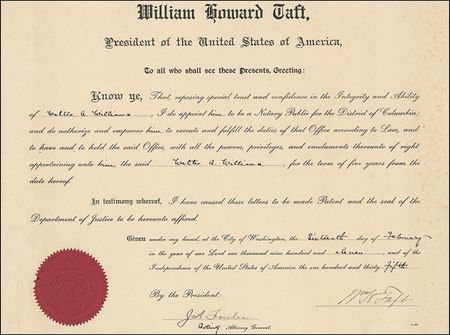 William Howard Taft,
President of the United States of America,
To all who shall see these Presents, Greeting:
Know ye, That, reposing special trust and confidence in the Integrity and Ability
of Walter A. Williams, I do appoint him to be a Notary Public for the District of Columbia;
and do authorize and empower him to execute and fulfill the duties of that Office according to Law, and
to have and to hold the said Office, with all the powers, privileges, and emoluments thereunto of right
appertaining unto him, the said Walter A. Williams, for the term of five years from the
date hereof.
In testimony whereof, I have caused these letters to be made Patent and the seal of the
Department of Justice to be hereunto affixed.
Given under my hand, at the City of Washington, the Sixteenth day of February
in the year of our Lord one thousand nine hundred and eleven and of the
Independence of the United States of America the one hundred and thirty fifth
By the President:
Wm H Taft
J A Fowler
Acting Attorney General.